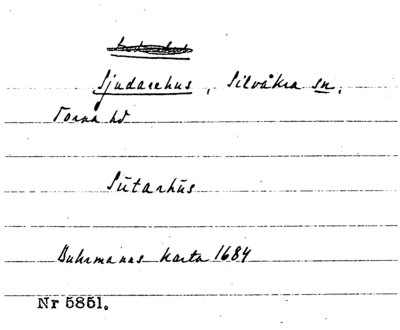 Sjudarehus, Silvåkra sn,
Torna hd
Sütarhüs
Buhrmanns karta 1684
Nr 5851.